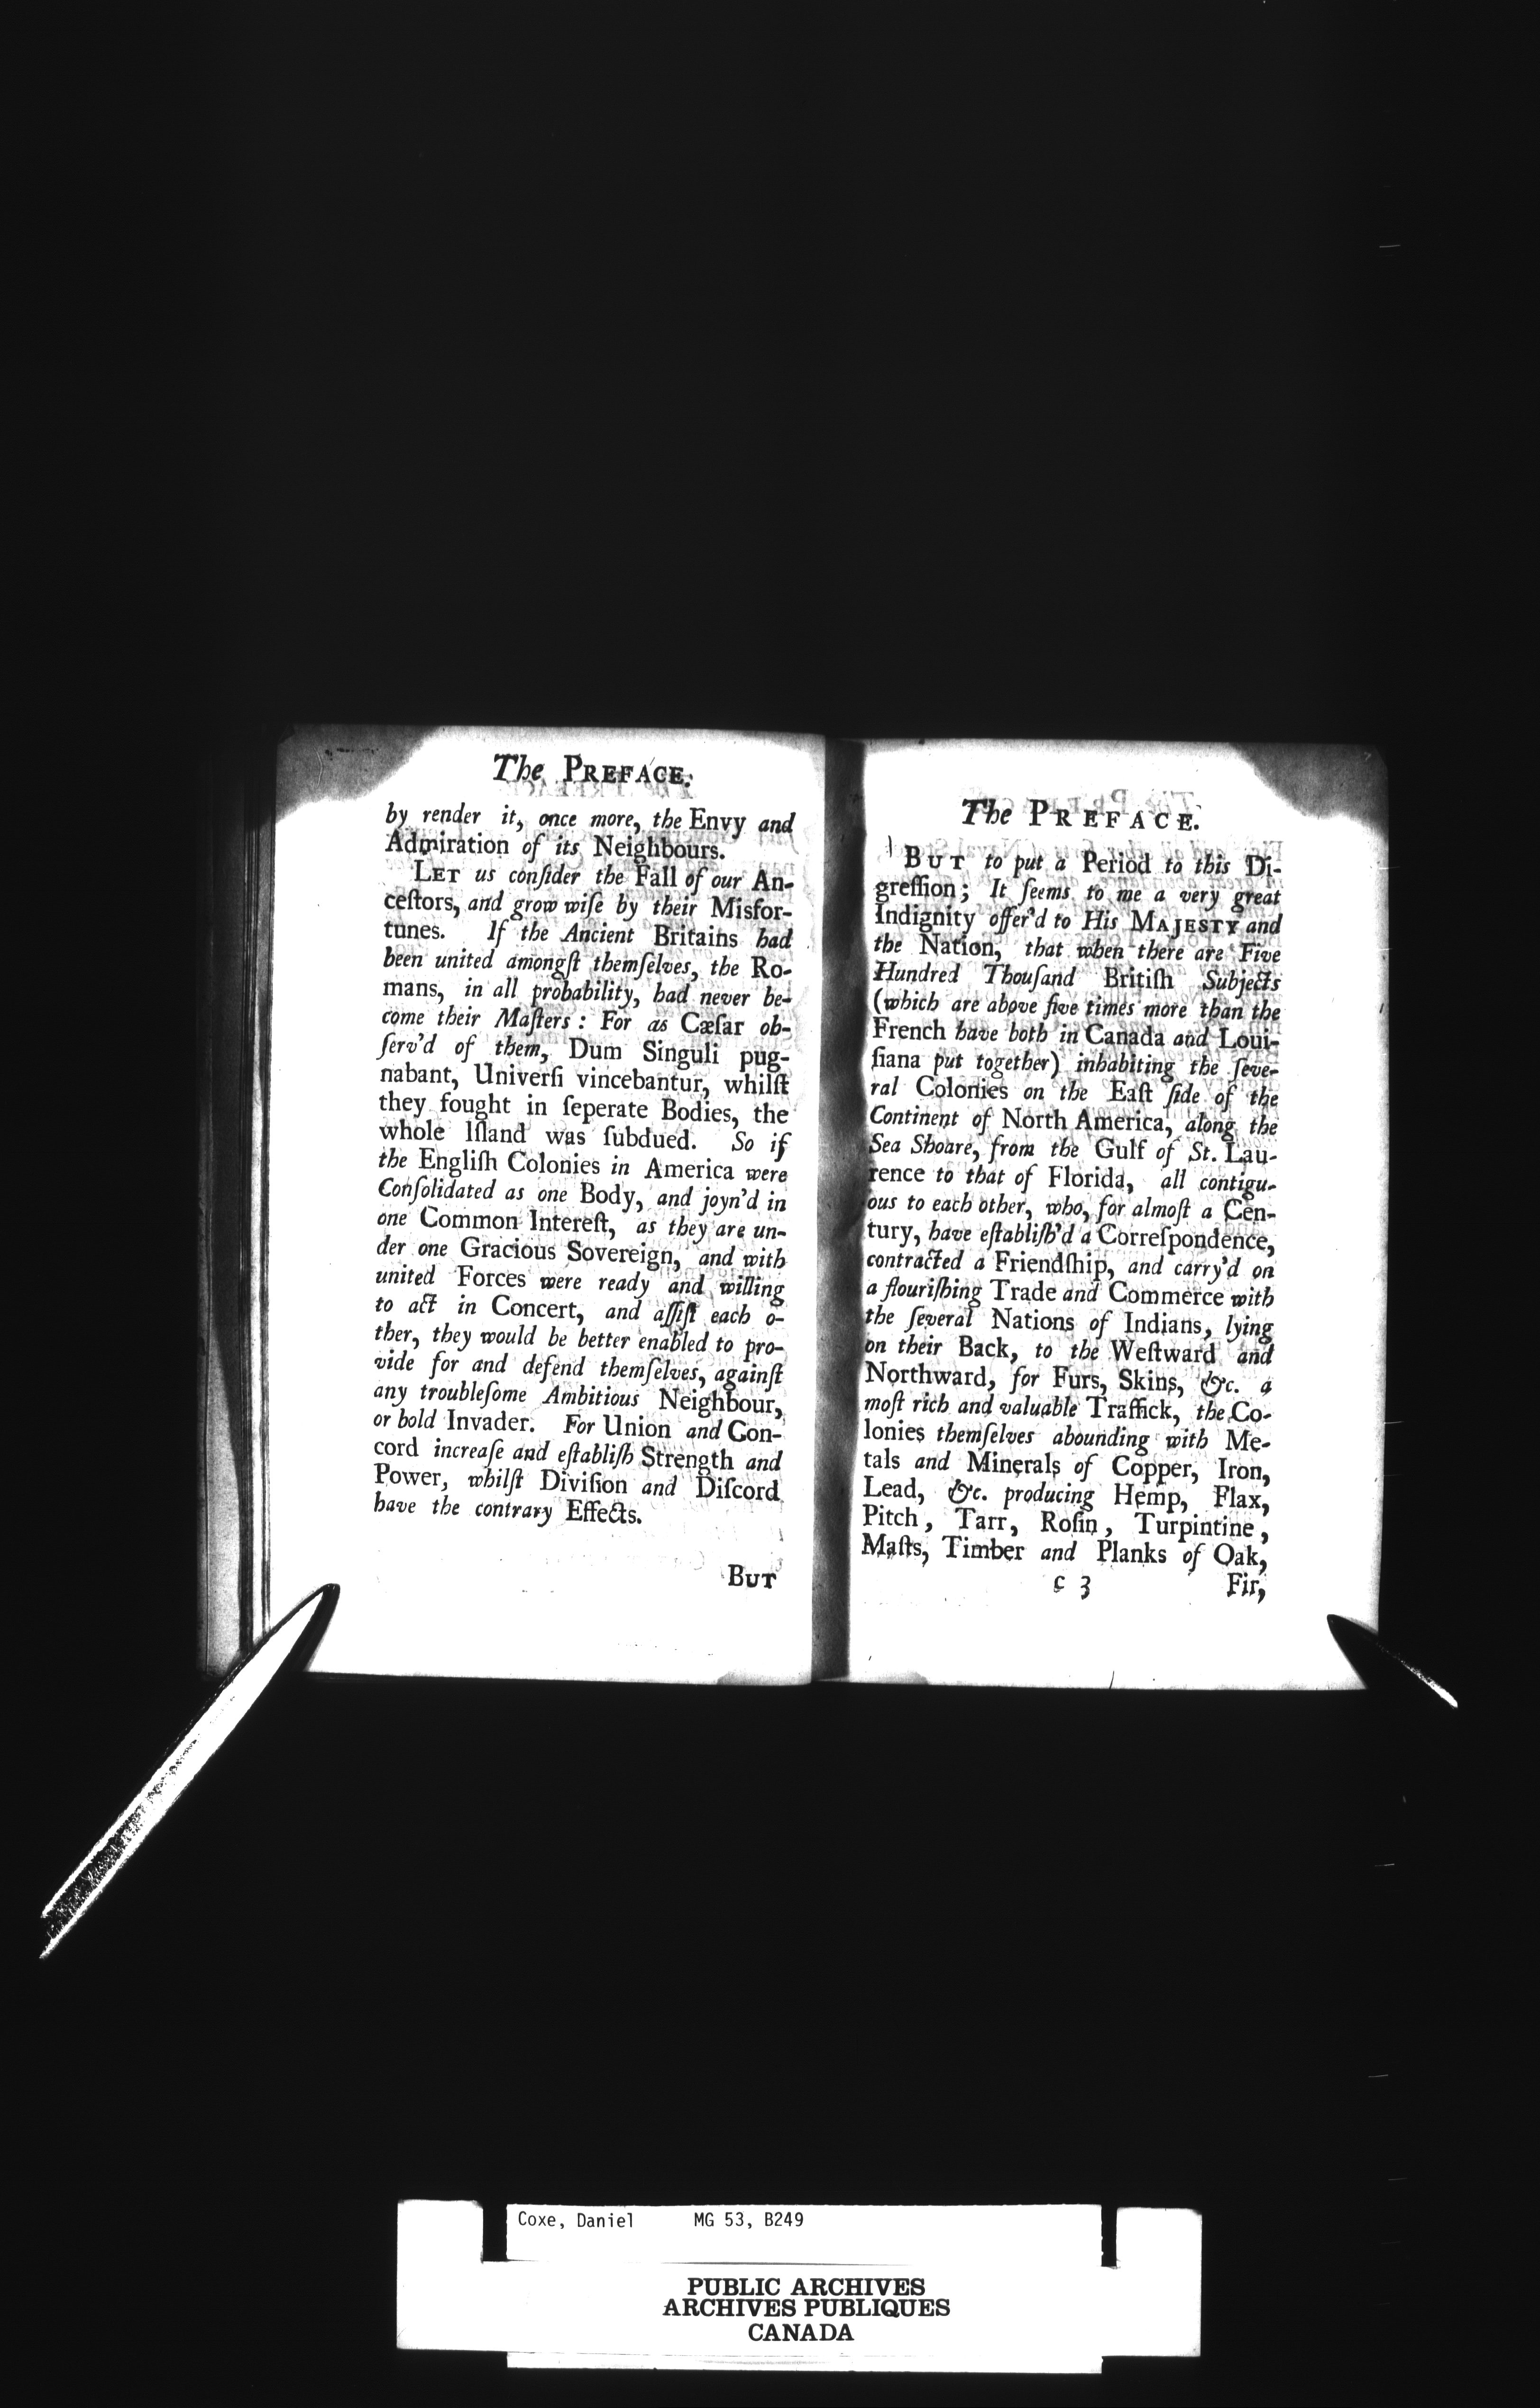 The PREFACE.
by render it, once more, the Envy and
Admiration of its Neighbours.
LET us conſider the Fall of our An-
ceſtors, and grow wiſe by their Misfor-
tunes. If the Ancient Britains had
been united amongſt themſelves, the Ro-
mans, in all probability, had never be-
come their Maſters: For as Cæſar ob-
ſerv'd of them, Dum Singuli pug-
nabant, Univerſi vincebantur, whilſt
they fought in ſeperate Bodies, the
whole Iſland was ſubdued. So if
the Engliſh Colonies in America were
Conſolidated as one Body, and joyn'd in
one Common Intereſt, as they are un-
der one Gracious Sovereign, and with
united Forces were ready and willing
to act in Concert, and aſſiſt each o-
ther, they would be better enabled to pro-
vide for and defend themſelves, againſt
any troubleſome Ambitious Neighbour,
or bold Invader. For Union and Con-
cord increaſe and eſtabliſh Strength and
Power, whilſt Diviſion and Diſcord
have the contrary Effects.
BUT
The PREFACE.
BUT to put a Period to this Di-
greſſion; It ſeems to me a very great
Indignity offer'd to His MAJESTY and
the Nation, that when there are Five
Hundred Thouſand Britiſh Subjects
(which are above five times more than the
French have both in Canada and Loui-
ſiana put together) inhabiting the ſeve-
ral Colonies on the Eaſt ſide of the
Continent of North America, along the
Sea Shoare, from the Gulf of St. Lau-
rence to that of Florida, all contigu-
ous to each other, who, for almoſt a Cen-
tury, have eſtabliſh'd a Correſpondence,
contracted a Friendſhip, and carry'd on
a flouriſhing Trade and Commerce with
the ſeveral Nations of Indians, lying
on their Back, to the Weſtward and
Northward, for Furs, Skins, &c. a
moſt rich and valuable Traffick, the Co-
lonies themſelves abounding with Me-
tals and Minerals of Copper, Iron,
Lead, &c. producing Hemp, Flax,
Pitch, Tarr, Roſin, Turpintine,
Maſts, Timber and Planks of Oak,
c 3 Fir,
Coxe, Daniel MG 53, B249
PUBLIC ARCHIVES
ARCHIVES PUBLIQUES
CANADA